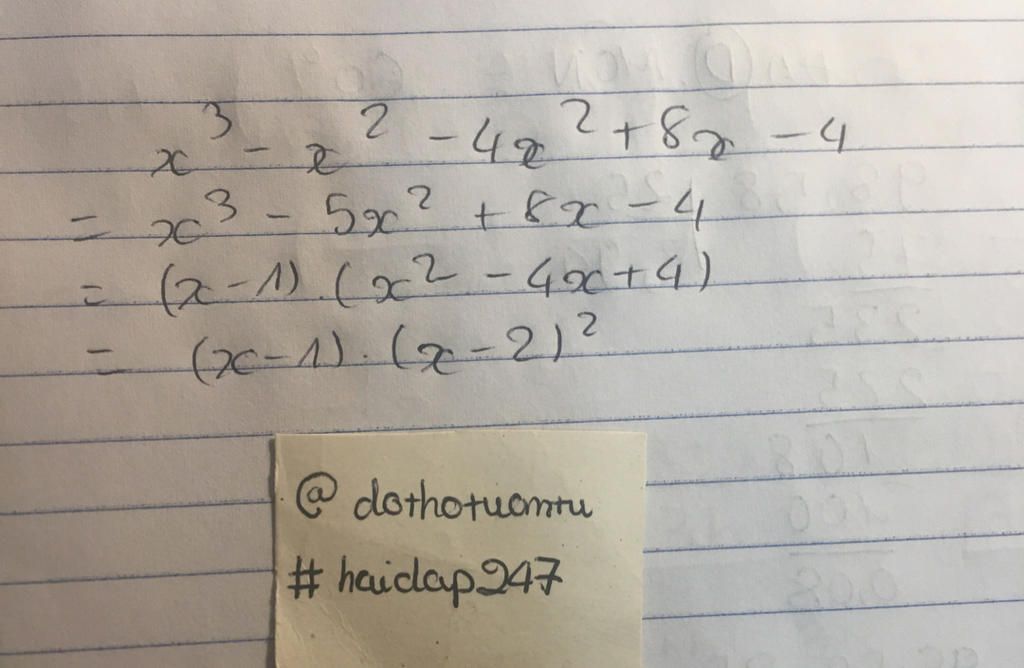 x³ - x² - 4x² + 8x - 4
= x³ - 5x² + 8x - 4
= (x-1).(x² - 4x+4)
= (x-1).(x-2)²
@ dothotuomtu
# haidap247